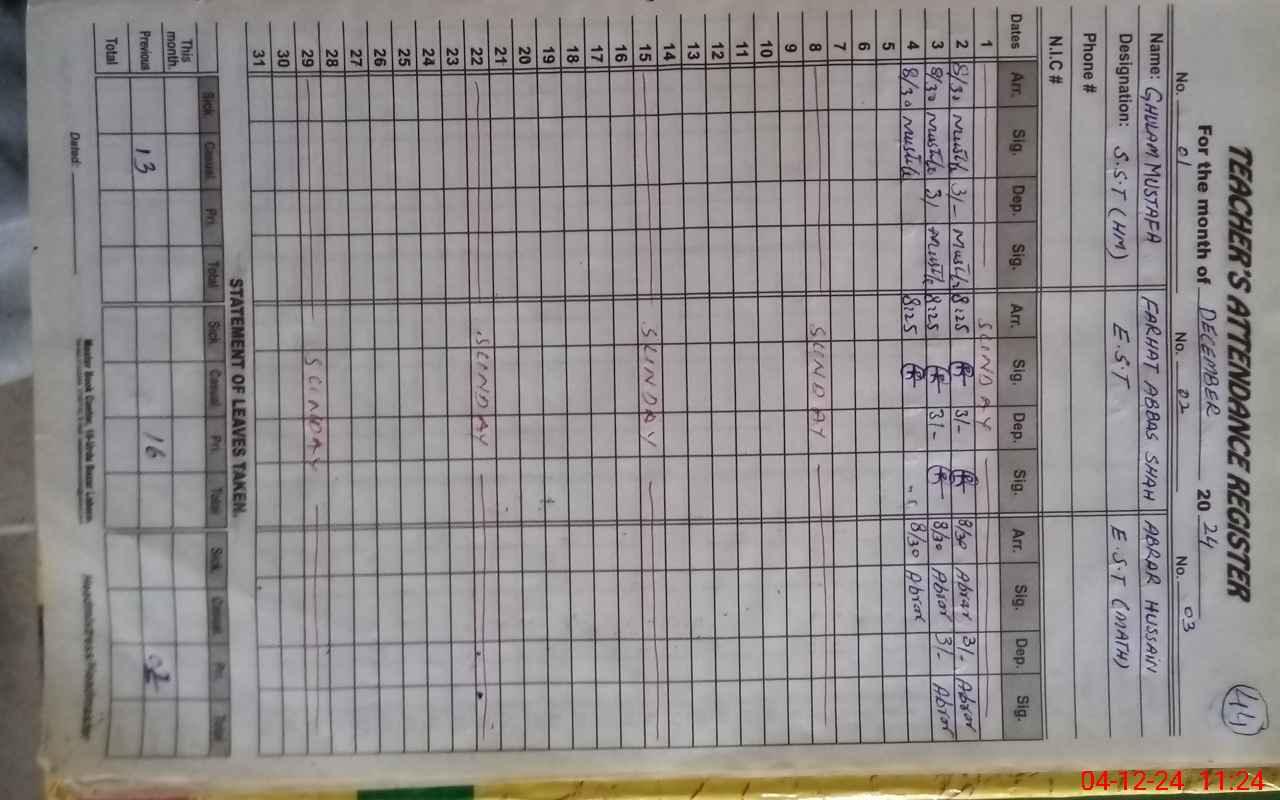 44
TEACHER'S ATTENDANCE REGISTER
For the month of DECEMBER 2024
No. 01 No. 02 No. 03
Name: GHULAM MUSTAFA FARHAT ABBAS SHAH ABRAR HUSSAIN
Designation: S.S.T (HM) E.S.T E.S.T (MATH)
Phone #
N.I.C #
Dates Arr. Sig. Dep. Sig. Arr. Sig. Dep. Sig. Arr. Sig. Dep. Sig.
1 SUNDAY
2 8/30 Mustfa 3/- Mustfa 8:25 3/- 8/30 Abrar 3/- Abrar
3 8/30 Mustfa 3/- Mustfa 8:25 3/- 8/30 Abrar 3/- Abrar
4 8/30 Mustfa 8:25 8/30 Abrar
5
6
7
8 SUNDAY
9
10
11
12
13
14
15 SUNDAY
16
17
18
19
20
21
22 SUNDAY
23
24
25
26
27
28
29 SUNDAY
30
31
STATEMENT OF LEAVES TAKEN.
Sick Casual Pri. Total Sick Casual Pri. Total Sick Casual Pri. Total
This month.
Previous 13 16
Total
Dated: Master Book Centre, 19-Urdu Bazar Lahore.
04-12-24 11:24